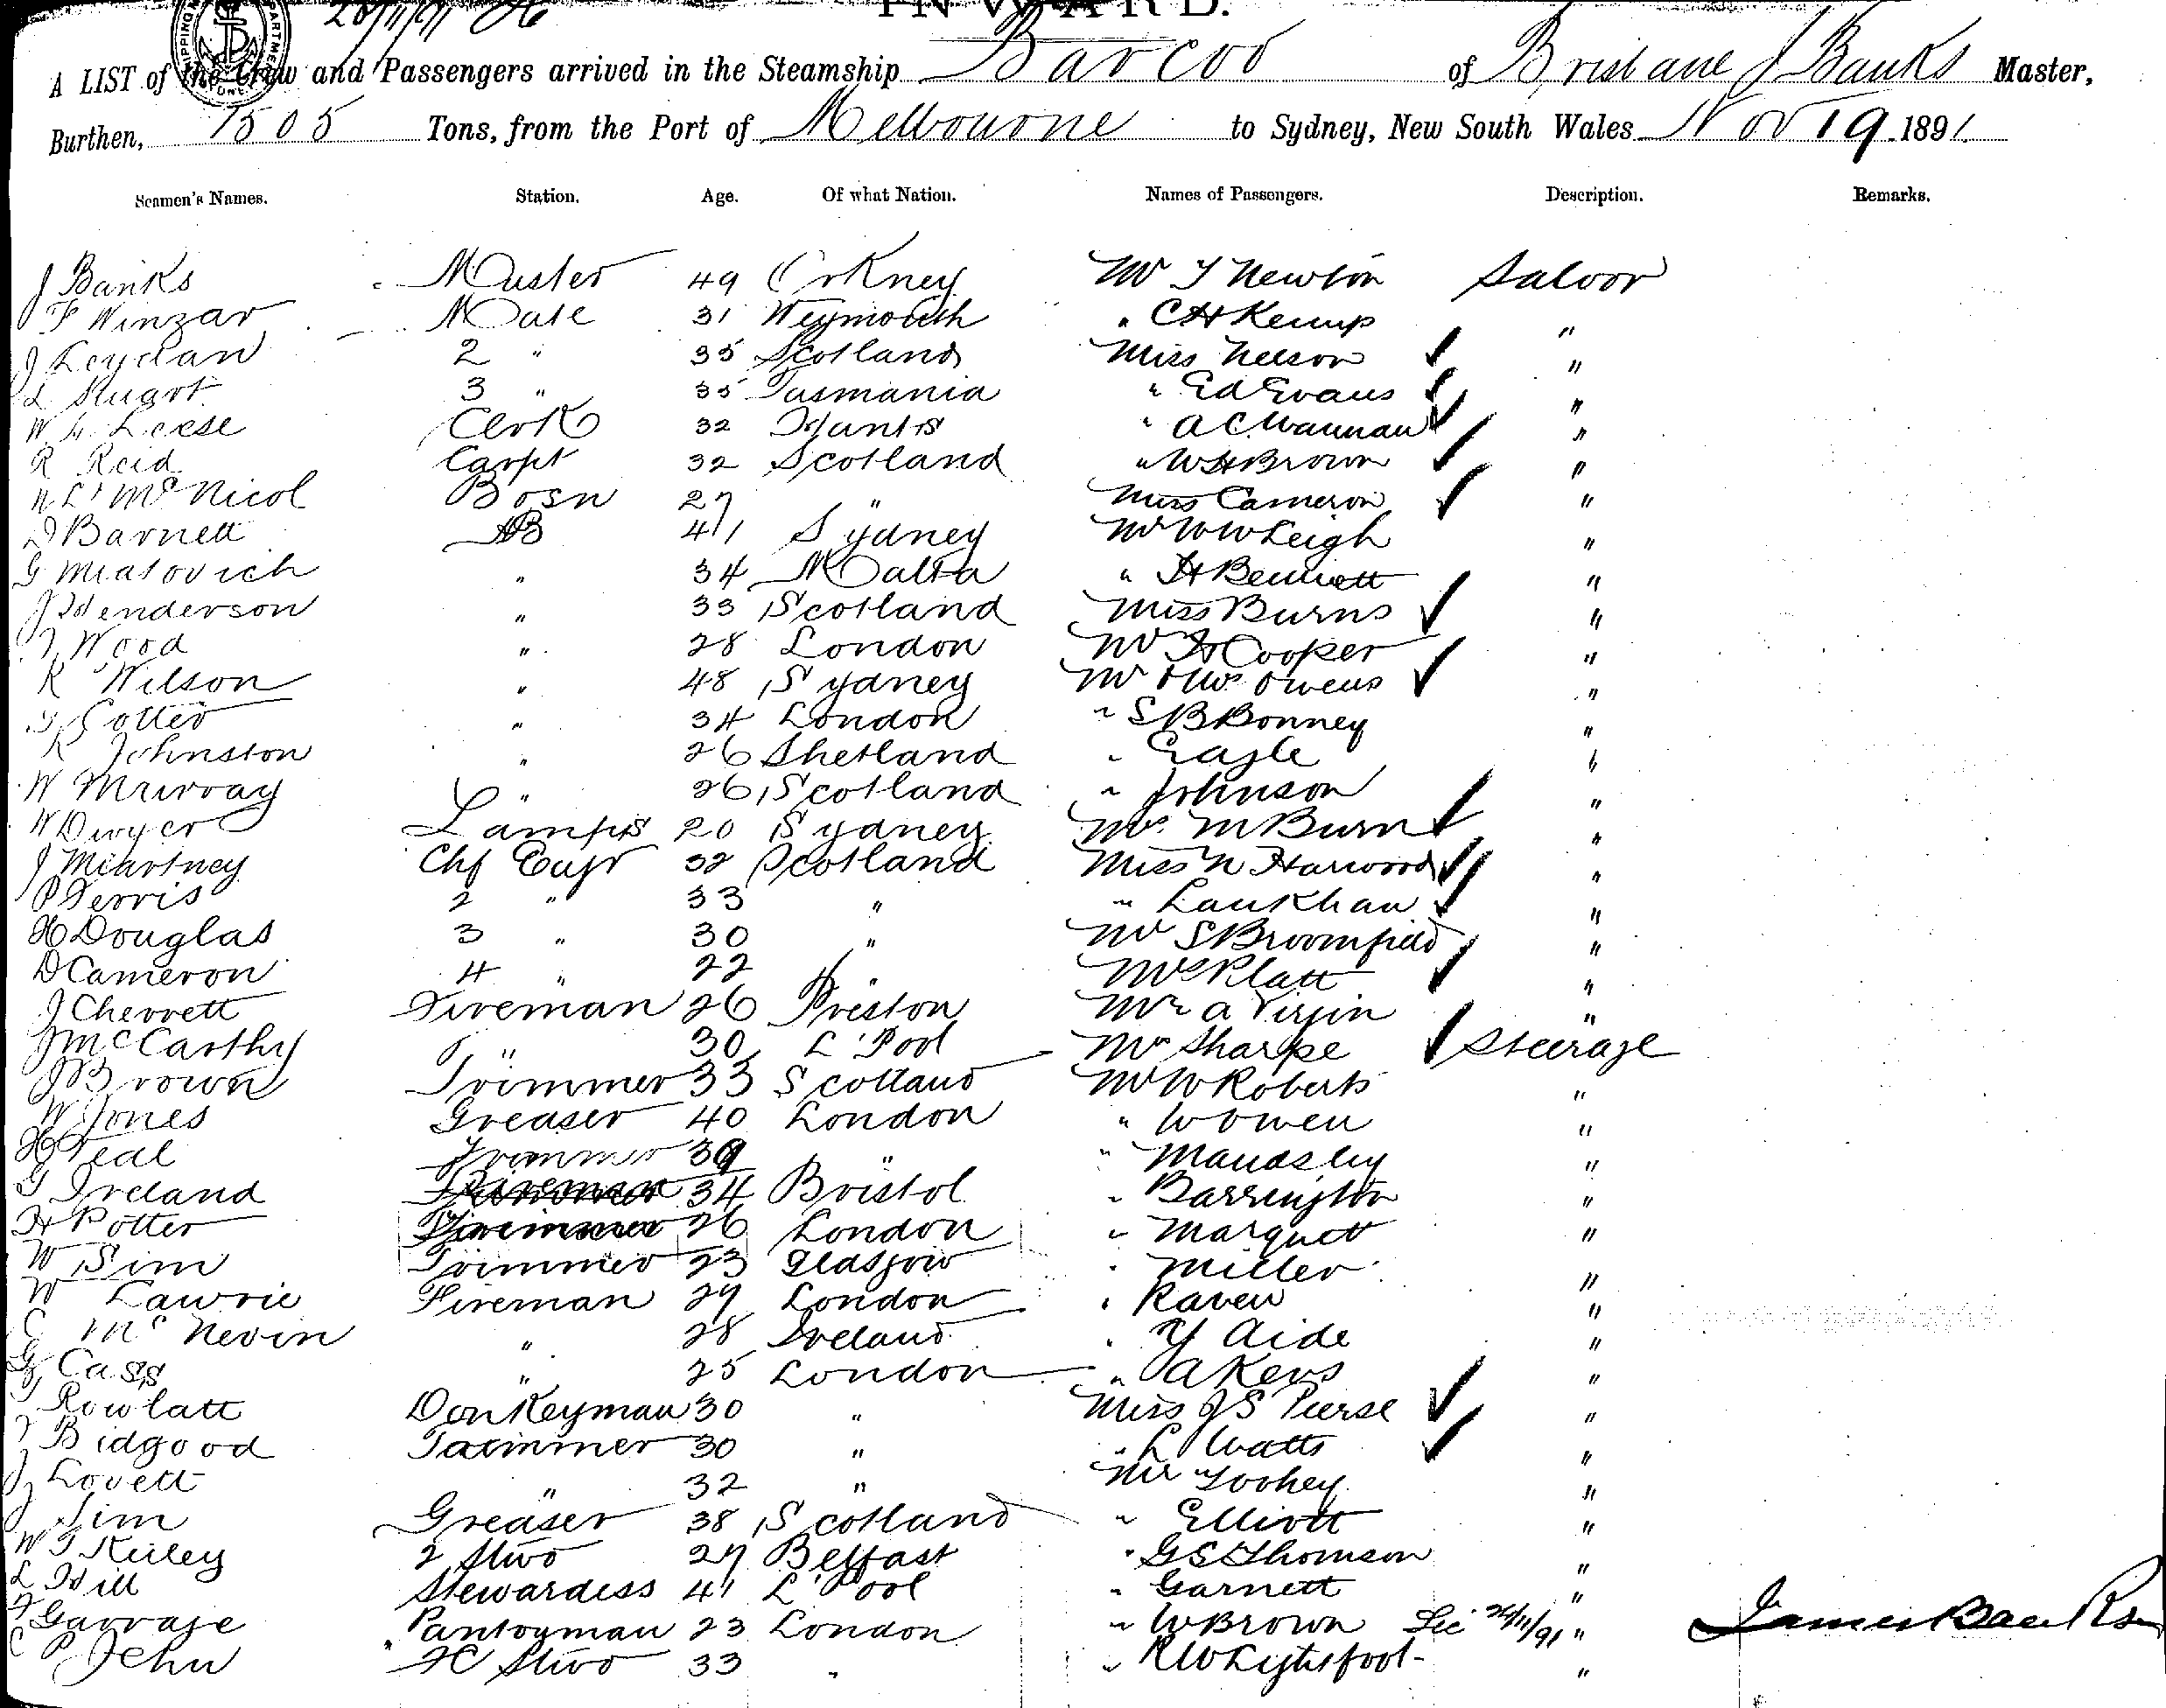 20/11/91
INWARD.
A LIST of the Crew and Passengers arrived in the Steamship Barcoo of Brisbane J Banks Master,
Burthen, 1505 Tons, from the Port of Melbourne to Sydney, New South Wales Nov 19 1891.
Seamen's Names. Station. Age. Of what Nation. Names of Passengers. Description. Remarks.
J Banks Master 49 Orkney Mr T Newton Saloon
F Winzar Mate 31 Weymouth " C H Kemp "
J Leydan 2 " 35 Scotland Miss Nelson "
L 3 " 35 Tasmania " Ed Evans "
W H Leese Clerk 32 Hants " A C Wannan "
R Reid Carpt 32 Scotland " W H Brown "
McNicol Bosn 27 " Miss Cameron "
D Barnett AB 41 Sydney Mr W W Leigh "
G Miatovich " 34 Malta " H Bennett "
J Henderson " 33 Scotland Miss Burns "
J Wood " 28 London Mr H Cooper "
R Wilson " 48 Sydney Mr & Mrs Owens "
Cotter " 34 London " S B Bonney "
R Johnston " 26 Shetland " Eagle "
W Murray " 26 Scotland " Johnson "
W Dwyer Lamps 20 Sydney Mrs M Burn "
J Mcartney Chf Engr 32 Scotland Miss N Harwood "
P Ferris 2 " 33 " " Laukhau "
H Douglas 3 " 30 " Mr S Broomfield "
D Cameron 4 " 22 " Mrs Platt "
J Chevrett Fireman 26 Preston Mr A Virgin "
J McCarthy " 30 L'Pool Mrs Sharpe Steerage
J Brown Trimmer 33 Scotland Mr W Roberts "
W Jones Greaser 40 London " W Owen "
H Teal Trimmer 39 " " Maudsley "
G Ireland Fireman 34 Bristol " Barrington "
H Potter 26 London " Marquett "
W Sim Trimmer 23 Glasgow " Miller "
W Lawrie Fireman 29 London " Raven "
C McNevin " 28 Ireland " Y Aide "
G Cass " 25 London " Akers "
Rowlatt Donkeyman 30 " Miss J S Pierse "
Bidgood Tarimmer 30 " " L Watts "
J Lovett " 32 " Mr Toohey "
J Sim Greaser 38 Scotland " Elliott "
W J Keiley 2 Stwd 27 Belfast " G S Thomson "
L Hill Stewardess 41 L'Pool " Garnett "
F Garrage Pantryman 23 London " W Brown "
C P Jehu FC Stwd 33 " " R W Lightfoot "
James Banks